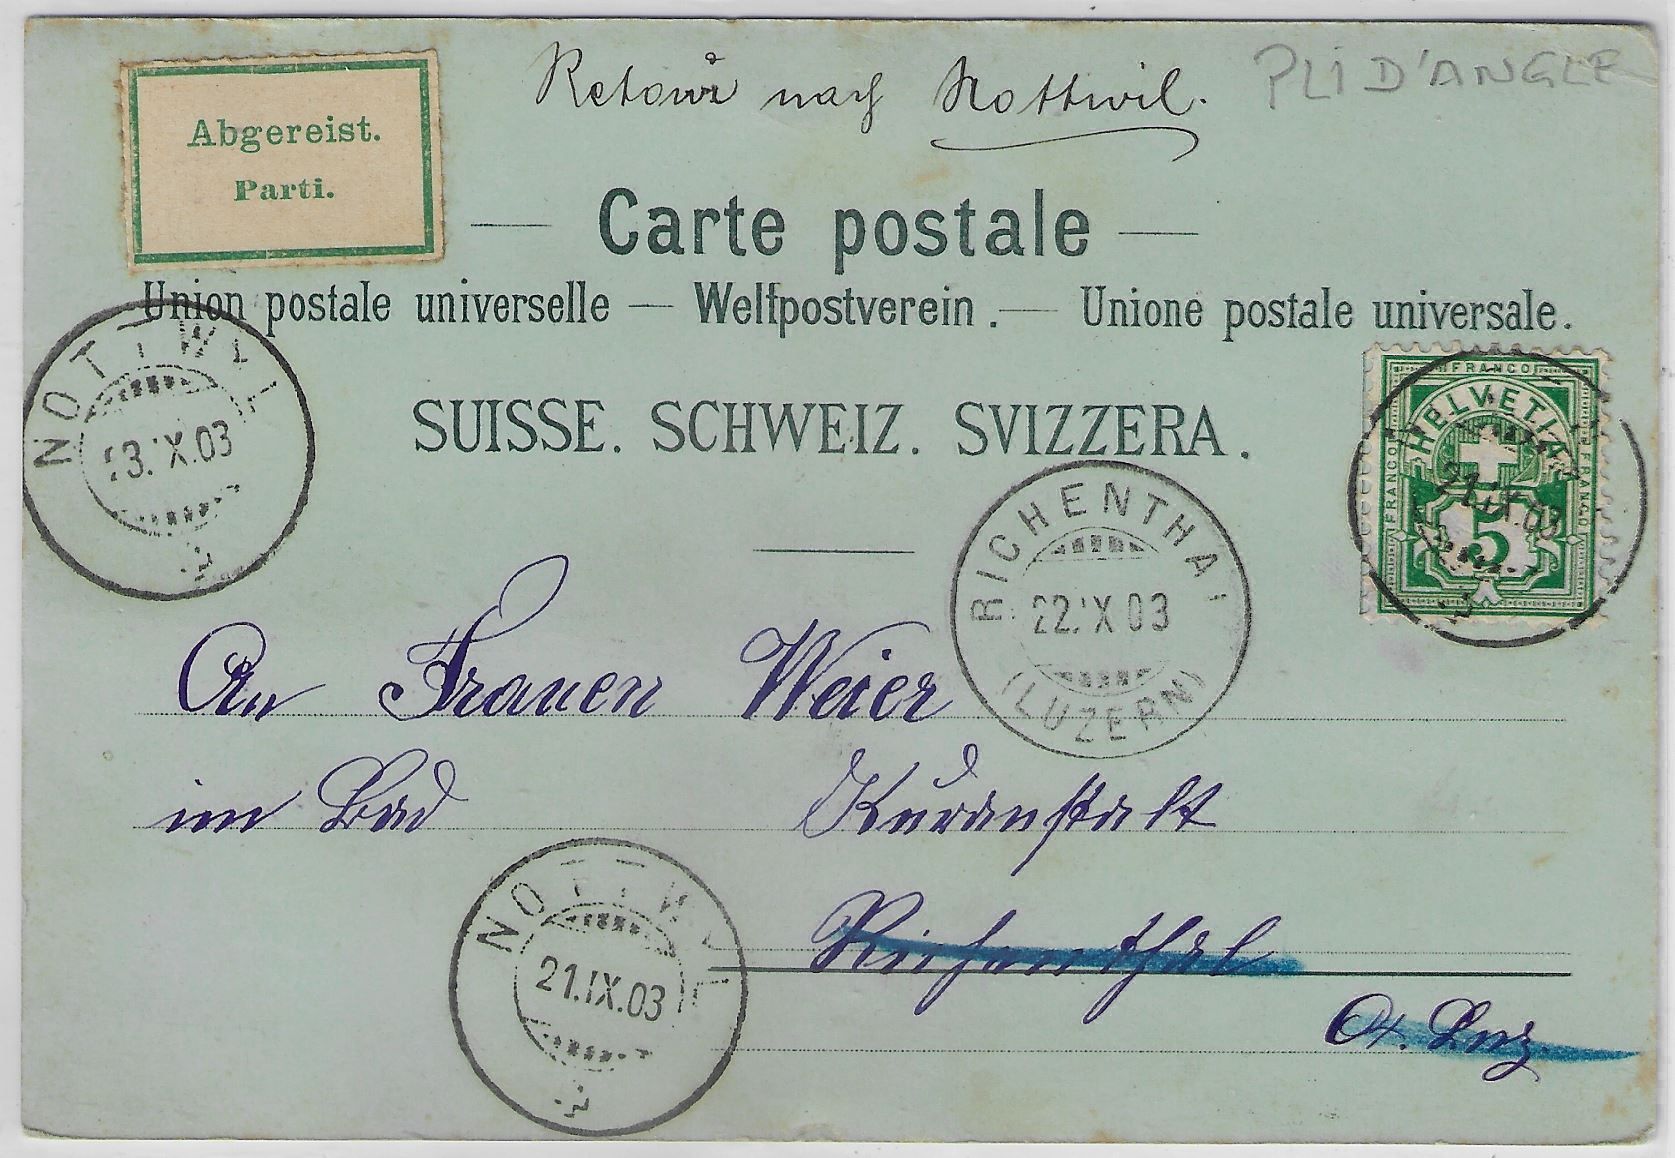 Retour nach Nottwil.
PLI D'ANGLE
Abgereist.
Parti.
Carte postale
Union postale universelle — Weltpostverein. — Unione postale universale.
SUISSE. SCHWEIZ. SVIZZERA.
NOTTWYL
23.IX.03
FRANCO
HELVETIA
FRANCO
FRANCO
21.IX.03
5
RICHENTHAL
22.IX.03
(LUZERN)
An Frauen Weier
im Bad Kuranstalt
Richenthal
Ct. Luz.
NOTTWYL
21.IX.03